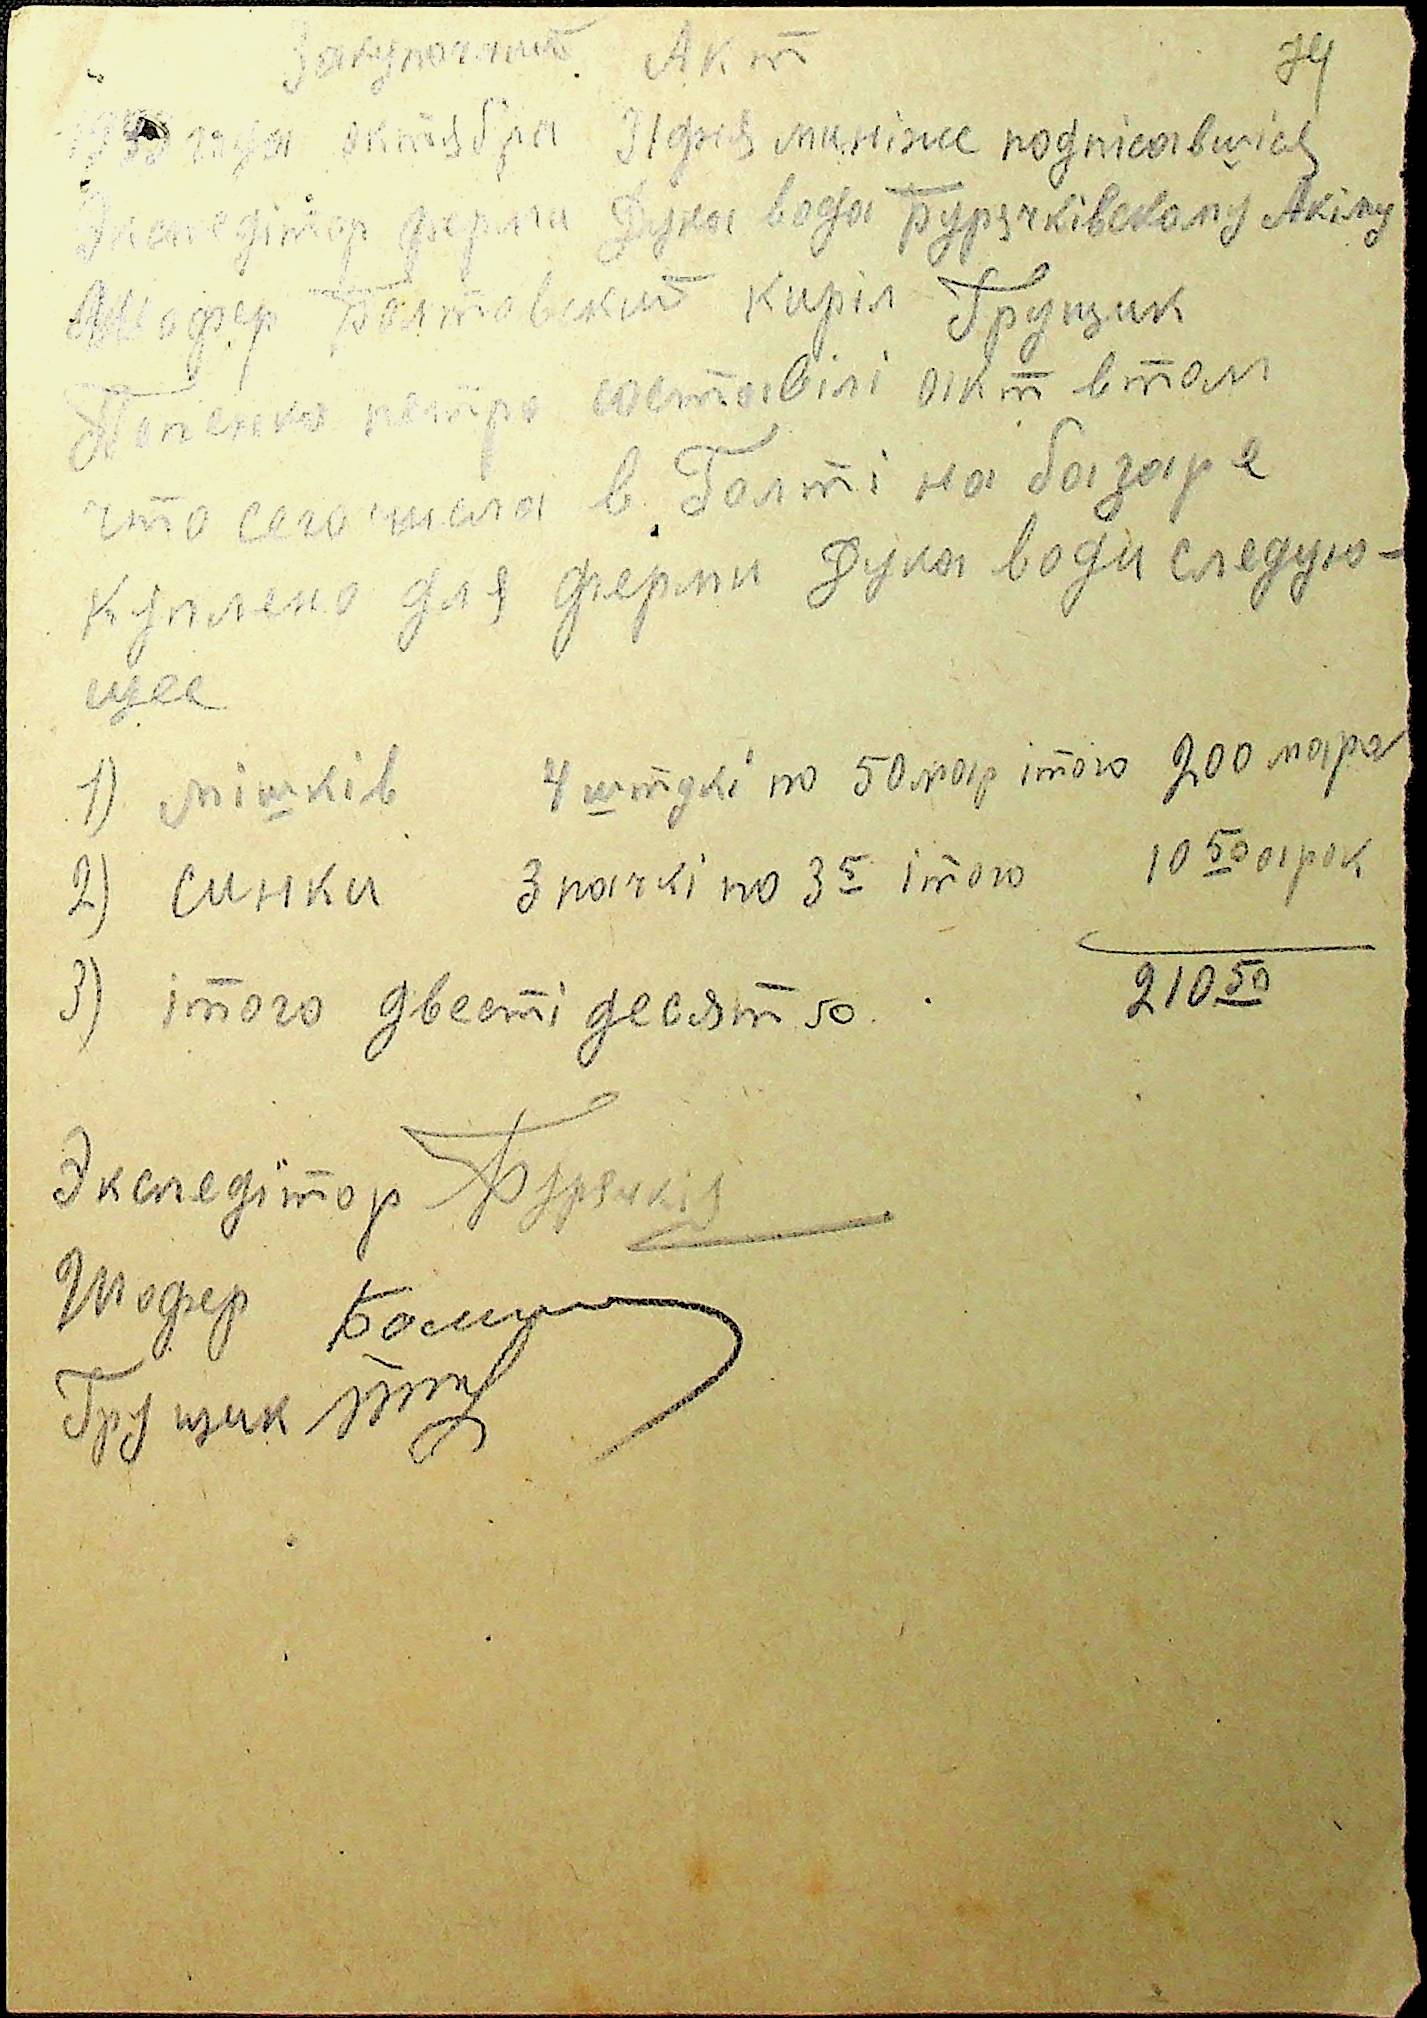 Закупочний Акт 74
1943 года октября 31 дня ми ніже подпісавшіся
Экспедітор ферми Дука вода Бурячківскому Акіму
Шофер Болтовский Киріл Грущик
Попенко петро составілі акт втом
что сего чісла в Голті на базаре
Куплено для ферми Дука води следую-
щее
1) мішків 4 штукі по 50 мар ітого 200 мара
2) синки 3 пачкі по 3 5 ітого 10 50 арок
210 50
3) ітого двесті десят 50
Экспедітор Бурячкі
Шофер
Грущик